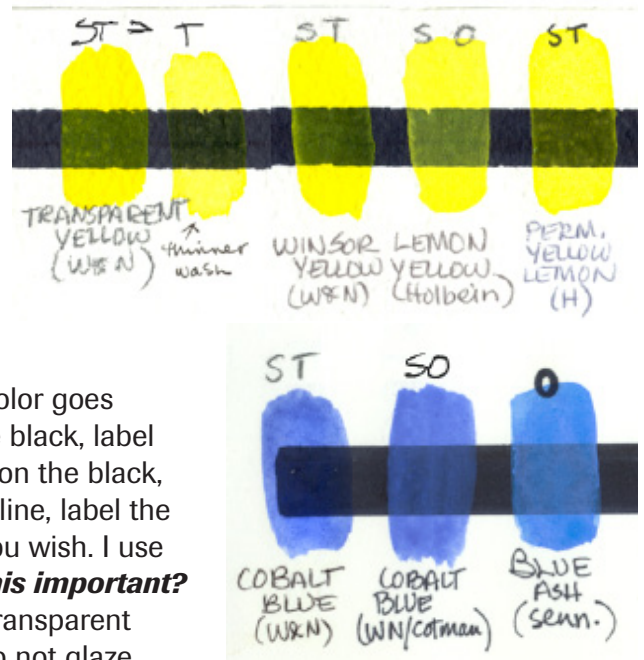 ST > T ST SO ST
TRANSPARENT
YELLOW
(W&N)
↑
thinner
wash
WINSOR
YELLOW
(W&N)
LEMON
YELLOW
(Holbein)
PERM.
YELLOW
LEMON
(H)
olor goes
black, label
on the black,
line, label the
ou wish. I use
his important?
ransparent
o not glaze
ST SO O
COBALT
BLUE
(W&N)
COBALT
BLUE
(WN/Cotman)
BLUE
ASH
(Senn.)